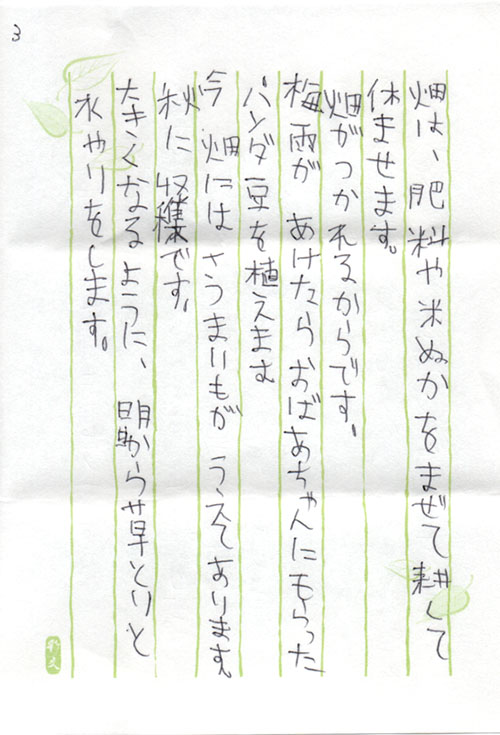 3
畑は、肥料や米ぬかをまぜて耕して
休ませます。
畑がつかれるからです。
梅雨が あけたら おばあちゃんにもらった
パンダ豆を植えます
今 畑には さつまいもが うえてあります。
秋に収穫です。
大きくなるように、 朝から草とりと
水やりをします。